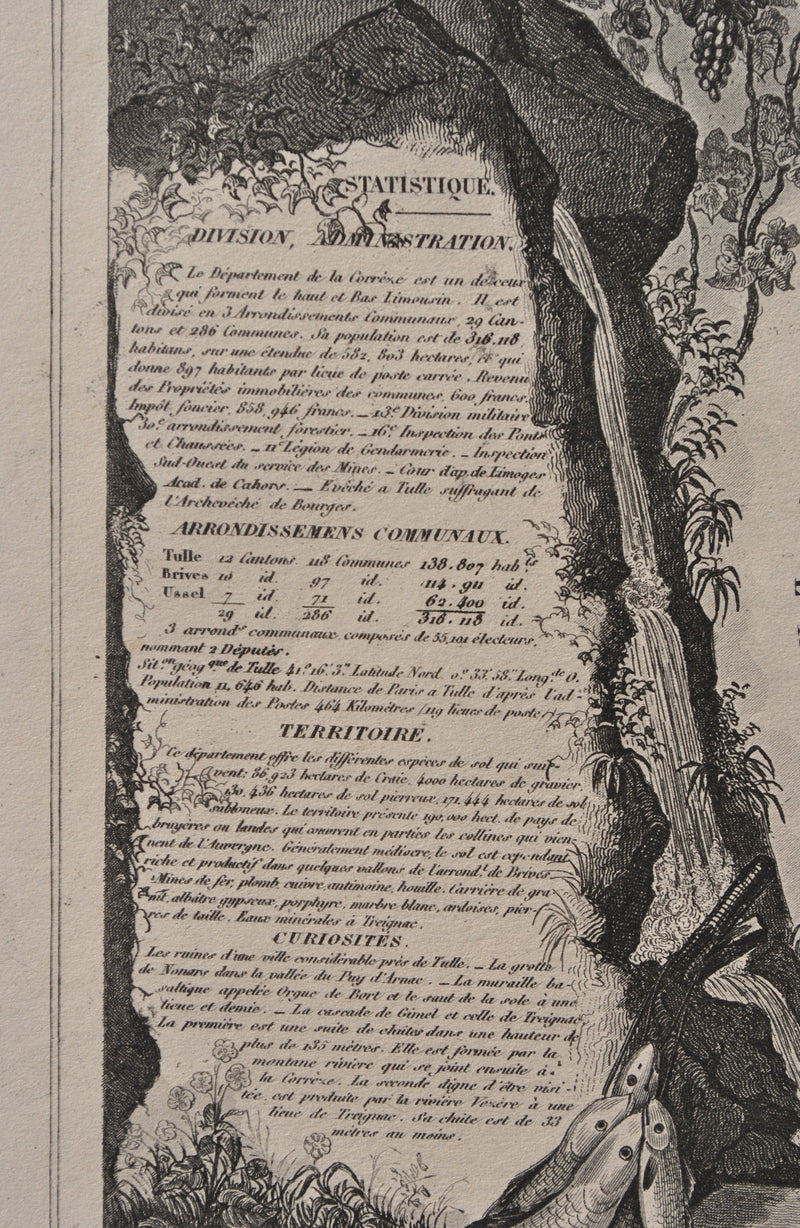 STATISTIQUE.
DIVISION, ADMINISTRATION.
Le Département de la Corrèze est un de ceux
qui forment le haut et Bas Limousin. Il est
divisé en 3 Arrondissements Communaux, 29 Can-
tons et 286 Communes. Sa population est de 318,118
habitans, sur une étendue de 582, 803 hectares, et qui
donne 897 habitants par lieue de poste carrée. Revenu
des Propriétés immobilières des communes, 600 francs.
Impôt foncier, 858,946 francs. _ 13.e Division militaire
30.e arrondissement forestier. _ 16.e Inspection des Ponts
et Chaussées. _ 11.e Légion de Gendarmerie. _ Inspection
Sud-Ouest du service des Mines. _ Cour d'ap. de Limoges
Acad. de Cahors. _ Evêché a Tulle suffragant de
l'Archevéché de Bourges.
ARRONDISSEMENS COMMUNAUX.
Tulle 12 Cantons 118 Communes 138.807 hab.ts
Brives 10 id. 97 id. 114.911 id.
Ussel 7 id. 71 id. 62.400 id.
29 id. 286 id. 318.118 id.
3 arronds communaux, composés de 55,101 électeurs,
nommant 2 Députés.
Sit.on géog.que de Tulle 41.° 16.' 3." Latitude Nord. 0.° 33.' 58." Long.de O.
Population 11, 646 hab. Distance de Paris a Tulle d'après l'ad-
ministration des Postes 464 Kilomètres (119 lieues de poste)
TERRITOIRE.
Ce département offre les différentes espèces de sol qui sui-
vent: 86,923 hectares de Craie, 4000 hectares de gravier,
130, 436 hectares de sol pierreux, 171,444 hectares de sol
sabloneux. Le territoire présente 190,000 hect. de pays de
bruyères ou landes qui couvrent en parties les collines qui vien-
nent de l'Auvergne. Généralement médiocre, le sol est cependant
riche et productif dans quelques vallons de l'arrond.t de Brives.
Mines de fer, plomb, cuivre, antimoine, houille. Carrière de gra-
nit, albâtre gypseux, porphyre, marbre blanc, ardoises, pier-
res de taille. Eaux minérales à Treignac.
CURIOSITÉS.
Les ruines d'une ville considérable près de Tulle. _ La grotte
de Nonars dans la vallée du Puy d'Arnac. _ La muraille ba-
saltique appelée Orgue de Bort et le saut de la sole à une
lieue et demie. _ La cascade de Gimel et celle de Treignac,
La première est une suite de chûtes dans une hauteur de
plus de 135 mètres. Elle est formée par la
montane rivière qui se joint ensuite à
la Corrèze. La seconde digne d'être visi-
tée est produite par la rivière Vezère à une
lieue de Treignac. Sa chûte est de 33
mètres au moins.